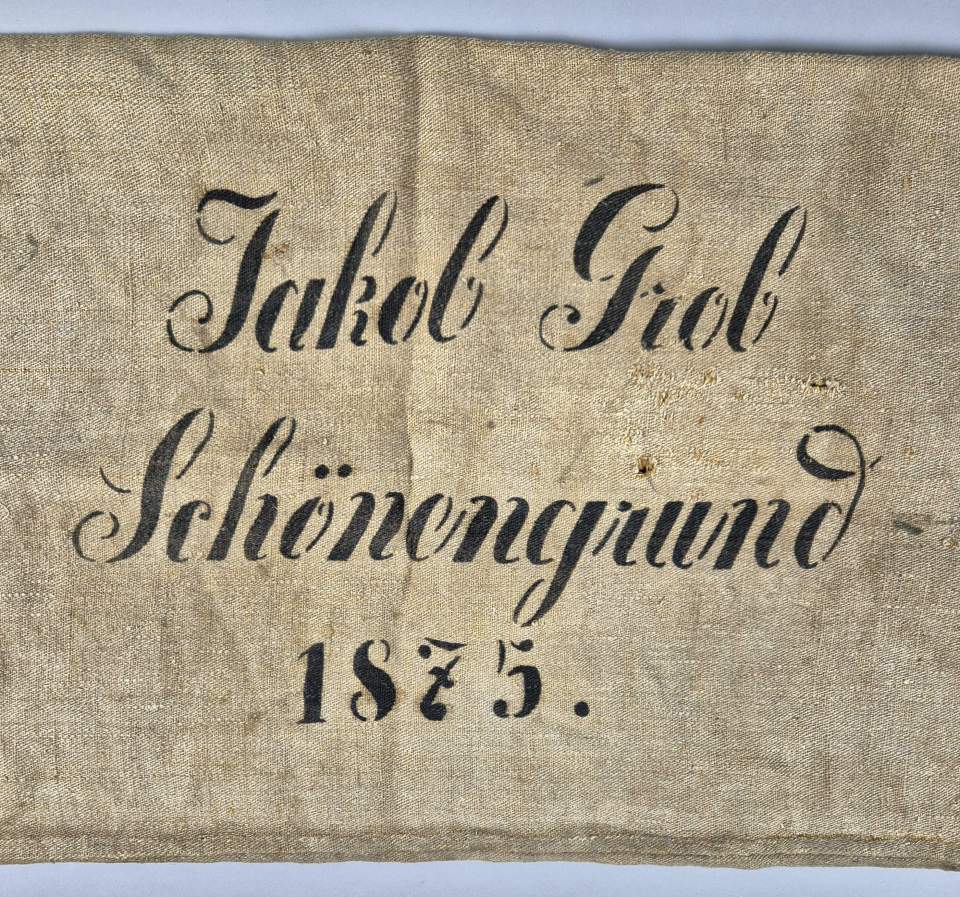 Jakob Grob
Schönengrund
1875.